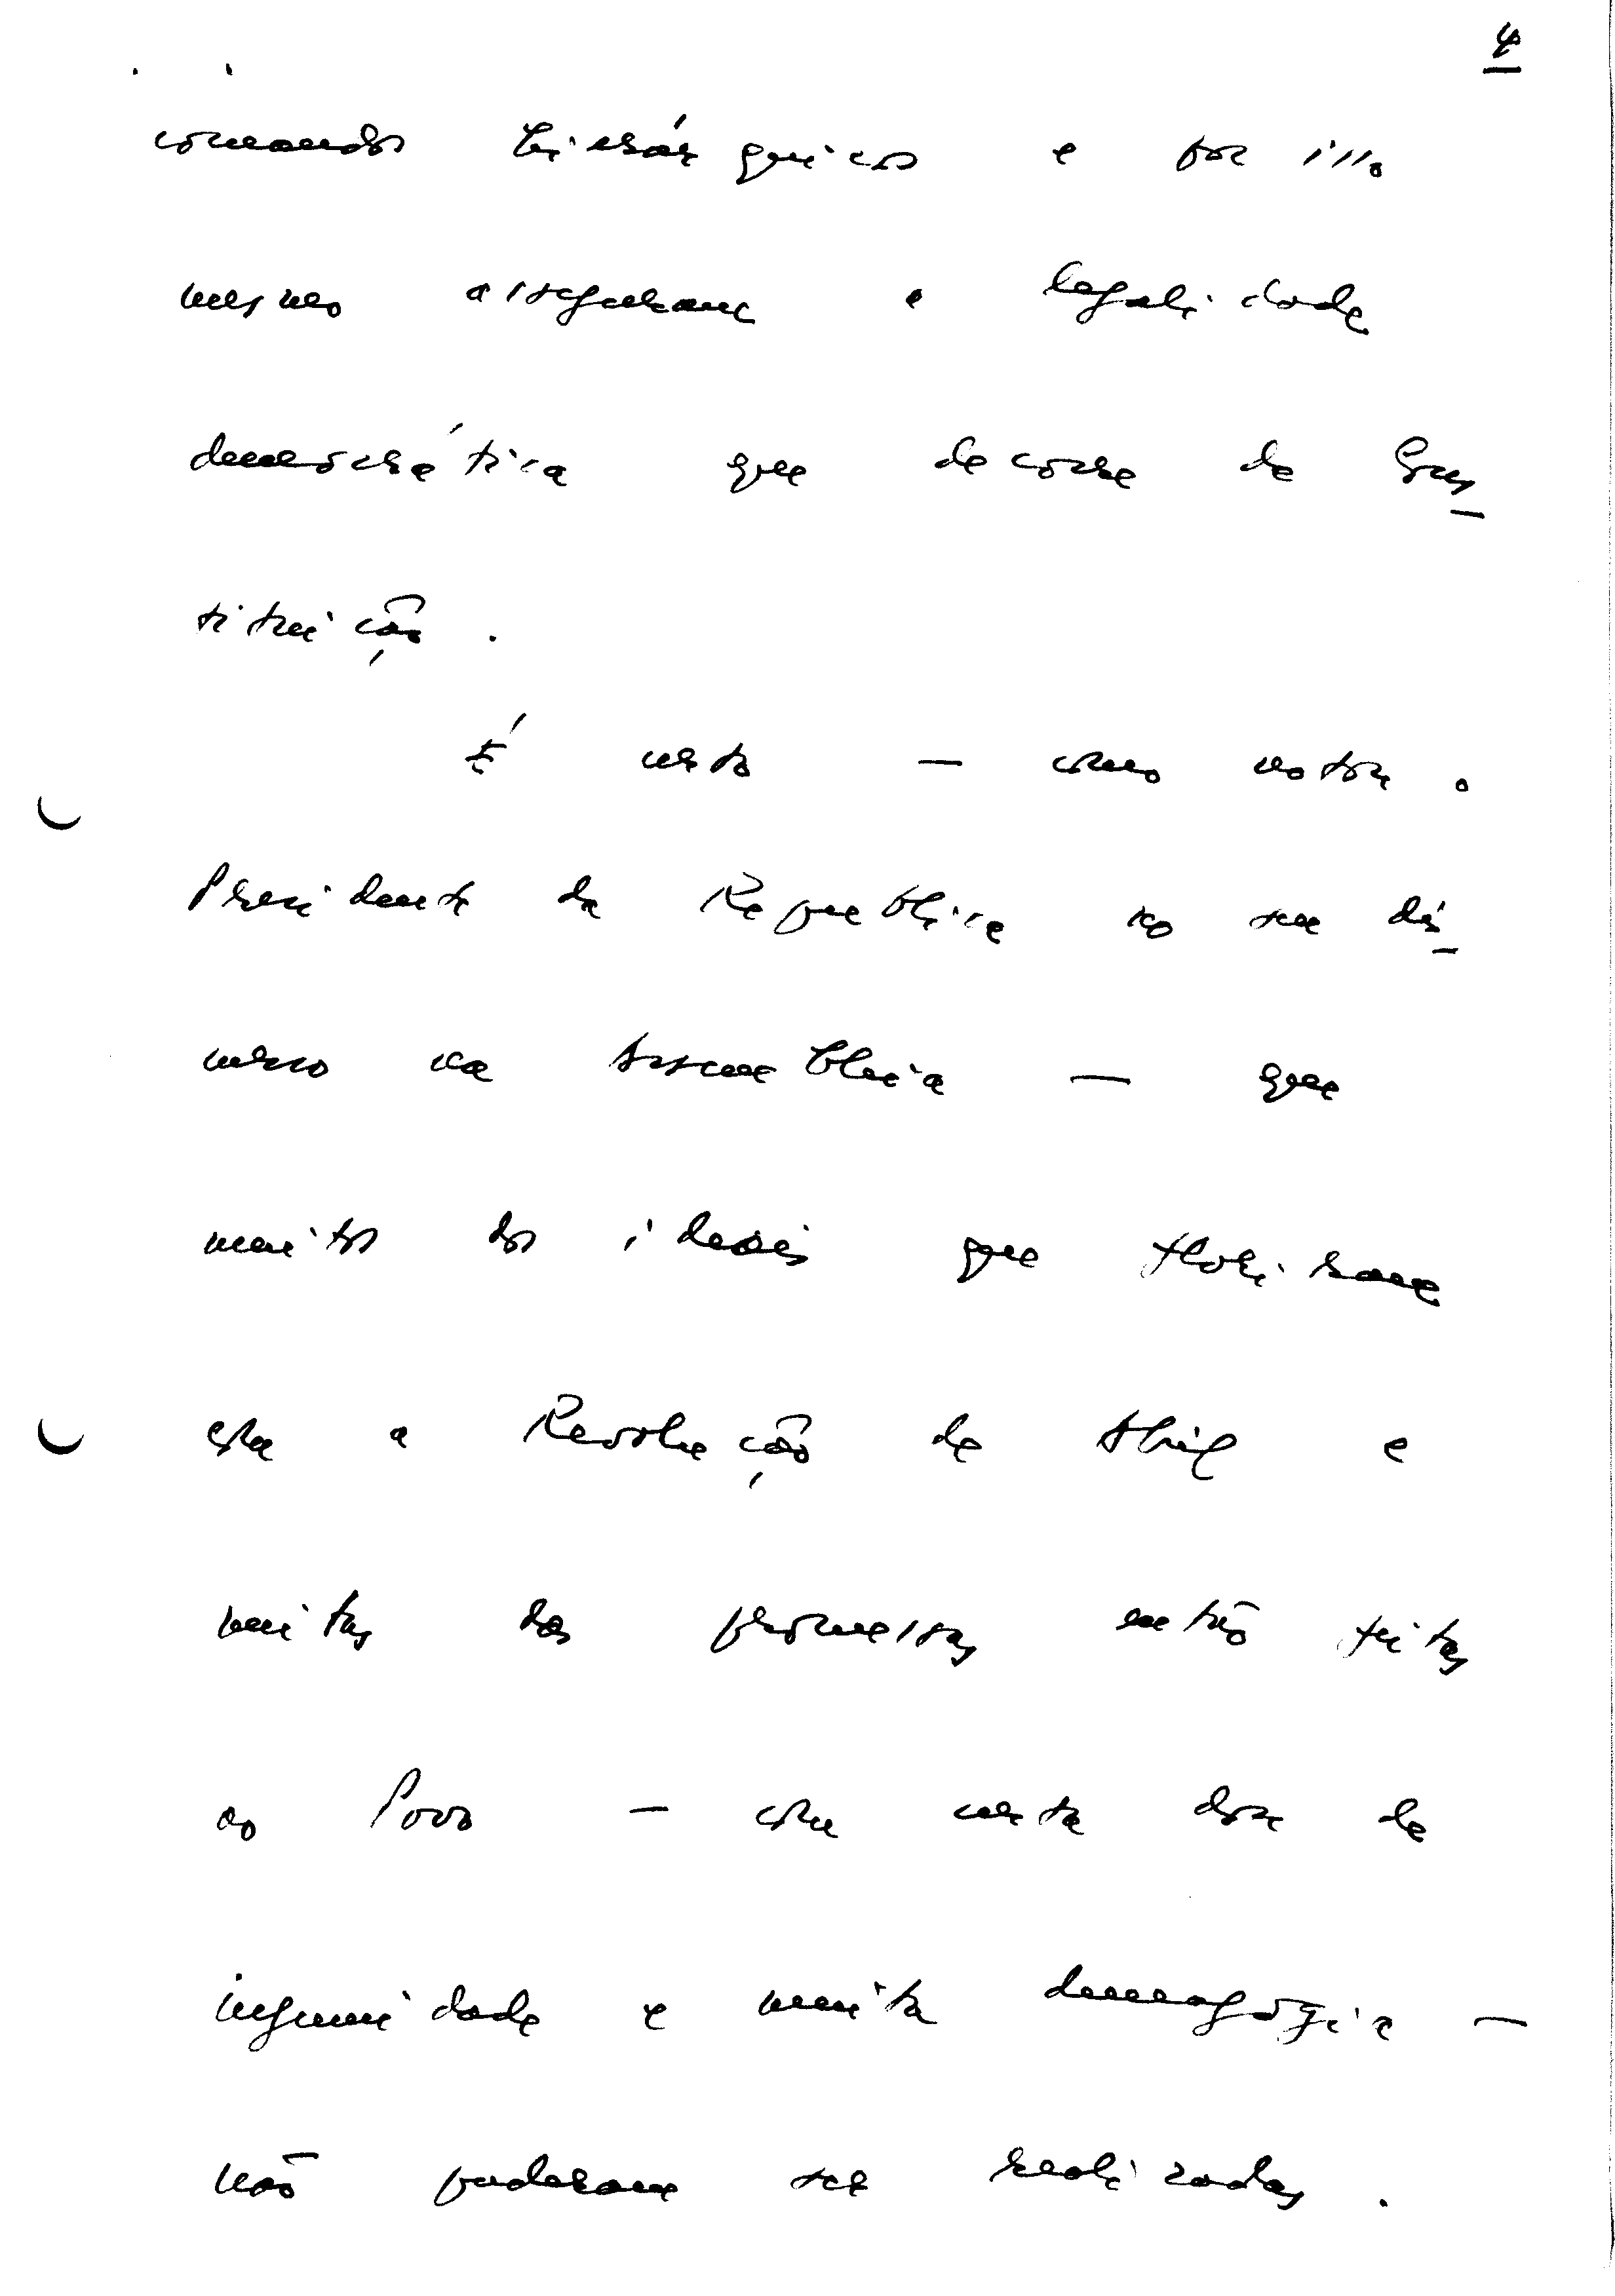 4
comandos hierárquicos e por isso
mesmo asseguram a legalidade
democrática que decorre da Cons_
tituição.
É certo — como notou o
Presidente da Republica no seu dis_
curso na Assembleia — que
muitos dos ideais que floriram
com a Revolução de Abril e
muitas das promessas então feitas
ao Povo — com certa dose de
ingenuidade e muita demagógia —
não puderam ser realizadas.